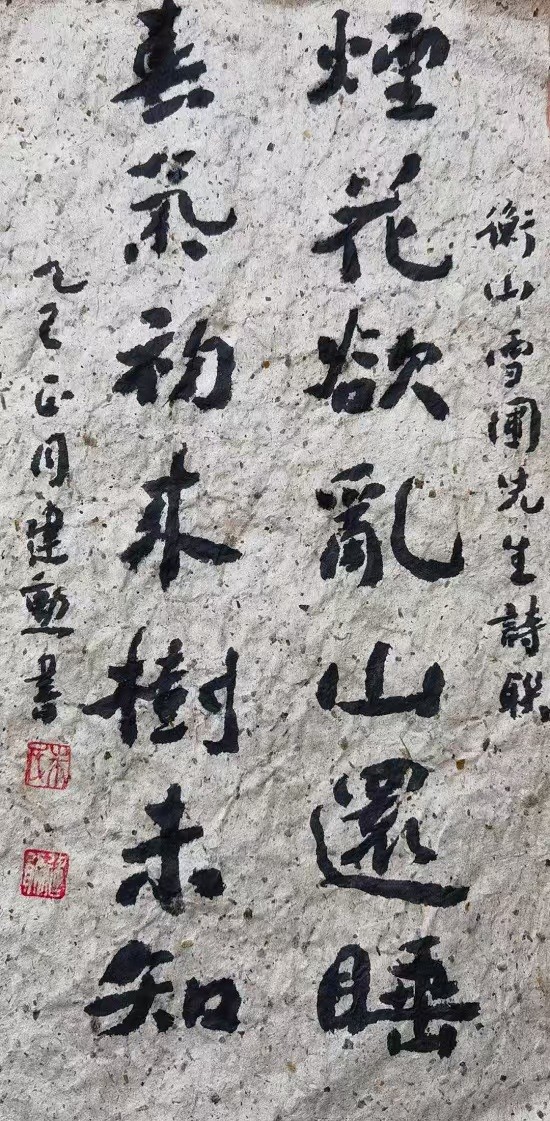 衡山雪圃先生詩聯
煙花欲亂山還睡
春氣初來樹未知
乙巳正月建勳書